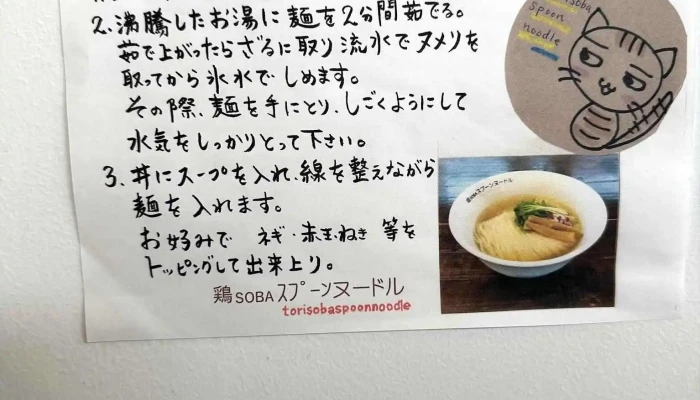 2. 沸騰したお湯に麺を2分間茹でる。
茹で上がったらざるに取り流水でヌメリを
取ってから氷水でしめます。
その際、麺を手にとり、しごくようにして
水気をしっかりとって下さい。
3. 丼にスープを入れ、線を整えながら
麺を入れます。
お好みで ネギ・赤玉ねき 等を
トッピングして出来上り。
鶏SOBAスプーンヌードル
torisobaspoonnoodle
soba
spoon
noodle
鶏SOBAスプーンヌードル